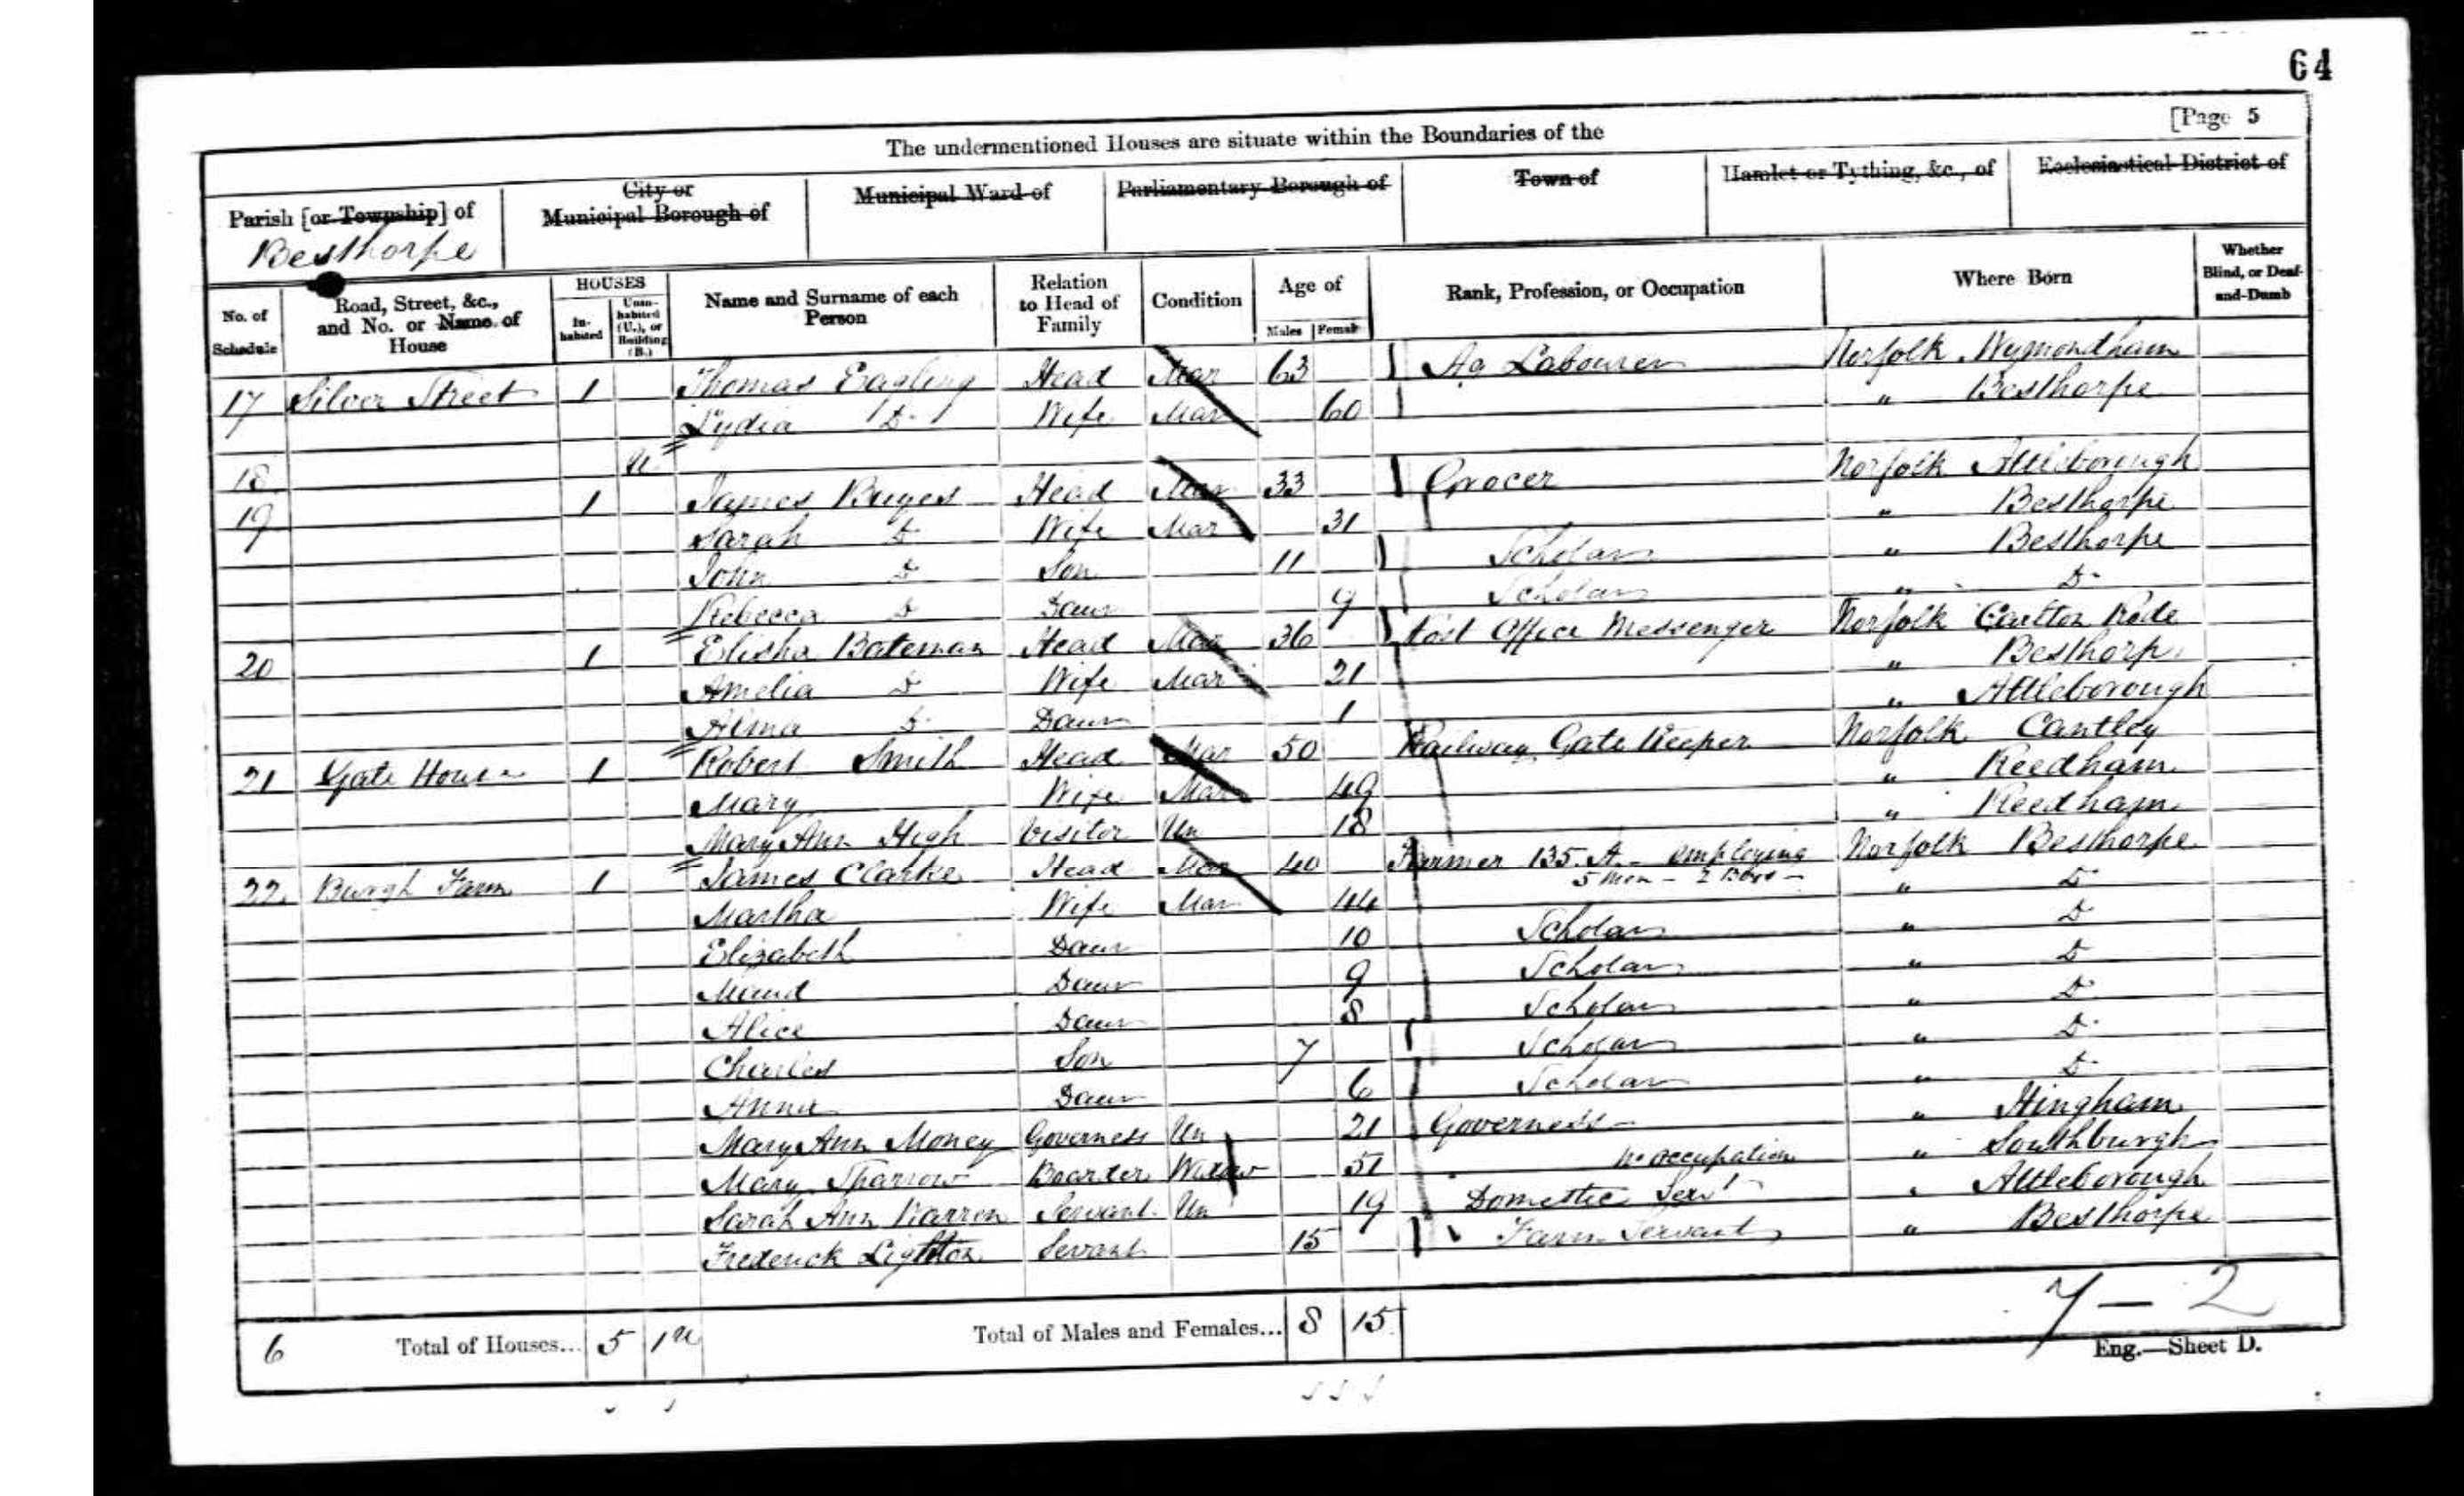 64
[Page 5
The undermentioned Houses are situate within the Boundaries of the
Parish [or Township] of Besthorpe
City or Municipal Borough of
Municipal Ward of
Parliamentary Borough of
Town of
Hamlet or Tything, &c., of
Ecclesiastical District of
No. of Schedule
Road, Street, &c., and No. or Name of House
HOUSES
In-habited
Unin-habited (U.), or Building (B.)
Name and Surname of each Person
Relation to Head of Family
Condition
Age of
Males Females
Rank, Profession, or Occupation
Where Born
Whether Blind, or Deaf-and-Dumb
17 Silver Street 1 Thomas Eagling Head Mar 63 Ag Labourer Norfolk Wymondham
Lydia Do Wife Mar 60 " Besthorpe
18 U
19 1 James Head Mar 33 Grocer Norfolk Attleborough
Sarah Do Wife Mar 31 " Besthorpe
John Do Son 11 Scholar " Besthorpe
Rebecca Do Daur 9 Scholar " Do
20 1 Elisha Bateman Head Mar 36 Post Office Messenger Norfolk Carlton Rode
Amelia Do Wife Mar 21 " Besthorpe
Alma Do Daur 1 " Attleborough
21 Gate House 1 Robert Smith Head Mar 50 Railway Gate Keeper Norfolk Cantley
Mary Wife Mar 49 " Reedham
Mary Ann High Visitor Un 18 " Reedham
22 Burgh Farm 1 James Clarke Head Mar 40 Farmer 135 A - employing Norfolk Besthorpe
5 Men - 2 Boys -
Martha Wife Mar 44 " Do
Elizabeth Daur 10 Scholar " Do
Maud Daur 9 Scholar " Do
Alice Daur 8 Scholar " Do
Charles Son 7 Scholar " Do
Anna Daur 6 Scholar " Do
Mary Ann Money Governess Un 21 Governess " Hingham
Mary Sparrow Boarder Widow 51 No occupation " Southburgh
Sarah Ann Warren Servant Un 19 Domestic Servt " Attleborough
Frederick Servant 15 Farm Servant " Besthorpe
6 Total of Houses... 5 1U Total of Males and Females... 8 15
7 — 2
Eng.—Sheet D.